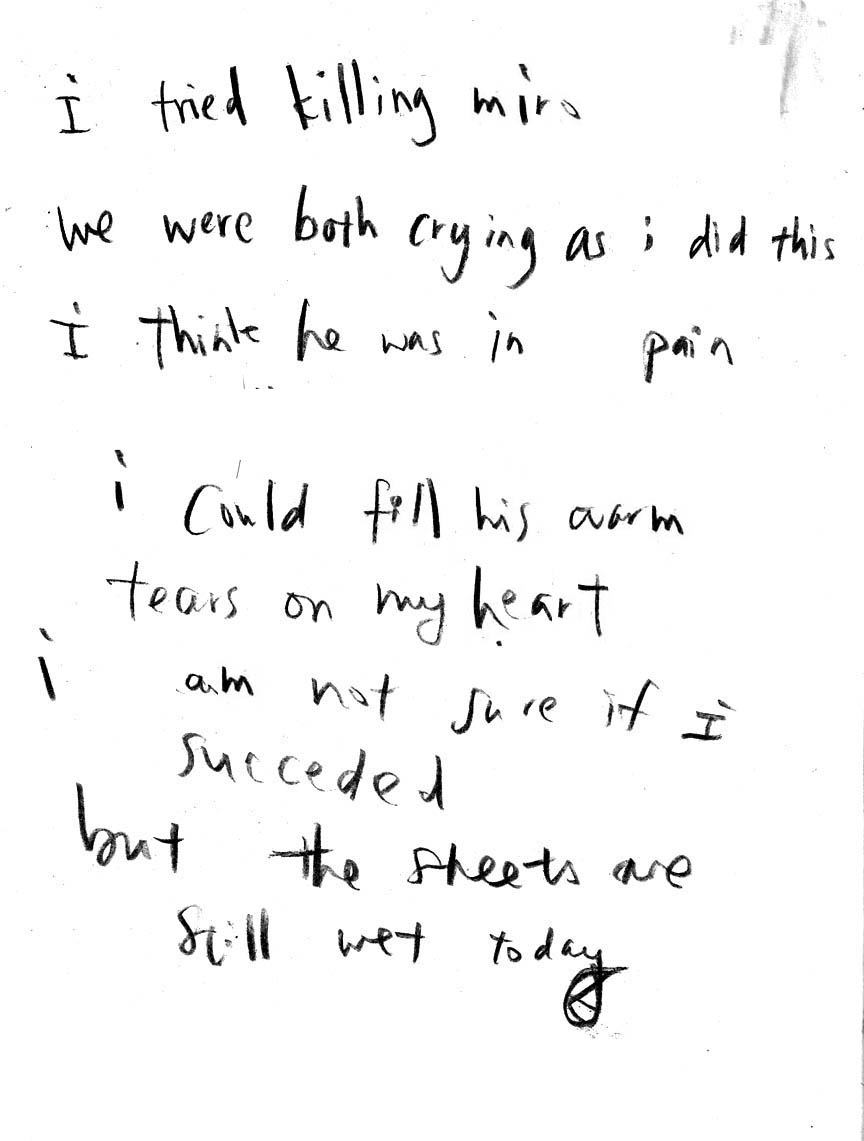 i tried killing miro
we were both crying as i did this
i think he was in pain
i could fill his warm
tears on my heart
i am not sure if i
succeded
but the sheets are
still wet today